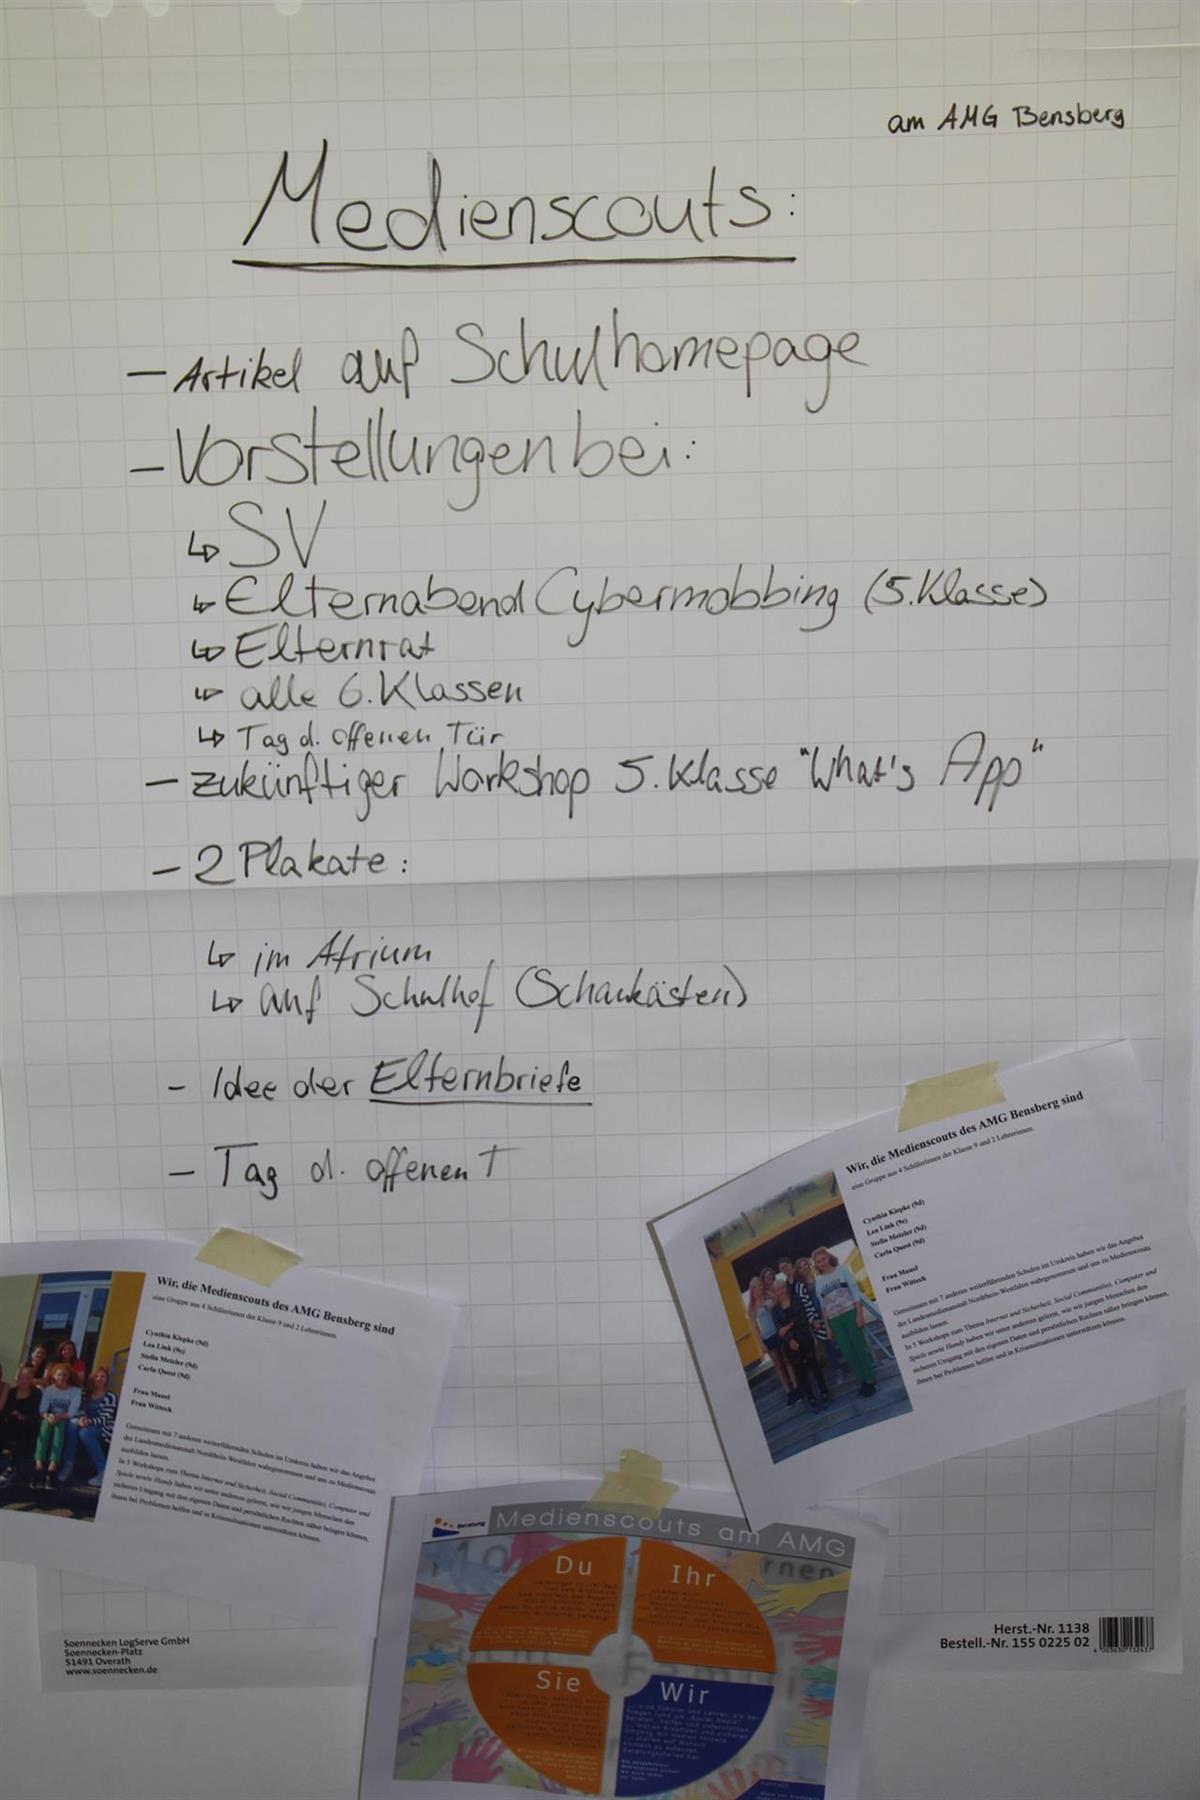 am AMG Bensberg
Medienscouts:
– Artikel auf Schulhomepage
– Vorstellungen bei:
↳ SV
↳ Elternabend Cybermobbing (5. Klasse)
↳ Elternrat
↳ alle 6. Klassen
↳ Tag d. offenen Tür
– zukünftiger Workshop 5. Klasse "What's App"
– 2 Plakate:
↳ im Atrium
↳ auf Schulhof (Schaukästen)
- Idee der Elternbriefe
– Tag d. offenen T
Wir, die Medienscouts des AMG Bensberg sind
eine Gruppe aus 4 Schülerinnen der Klasse 9 und 2 Lehrerinnen.
Cynthia Kiepke (9d)
Lea Link (9e)
Stella Metzler (9d)
Carla Quest (9d)
Frau Mauel
Frau Witteck
Gemeinsam mit 7 anderen weiterführenden Schulen im Umkreis haben wir das Angebot
der Landesmedienanstalt Nordrhein-Westfalen wahrgenommen und uns zu Medienscouts
ausbilden lassen.
In 5 Workshops zum Thema Internet und Sicherheit, Social Communities, Computer und
Spiele sowie Handy haben wir unter anderem gelernt, wie wir jungen Menschen den
sicheren Umgang mit den eigenen Daten und persönlichen Rechten näher bringen können,
ihnen bei Problemen helfen und in Krisensituationen unterstützen können.
Wir, die Medienscouts des AMG Bensberg sind
eine Gruppe aus 4 Schülerinnen der Klasse 9 und 2 Lehrerinnen.
Cynthia Kiepke (9d)
Lea Link (9e)
Stella Metzler (9d)
Carla Quest (9d)
Frau Mauel
Frau Witteck
Gemeinsam mit 7 anderen weiterführenden Schulen im Umkreis haben wir das Angebot
der Landesmedienanstalt Nordrhein-Westfalen wahrgenommen und uns zu Medienscouts
ausbilden lassen.
In 5 Workshops zum Thema Internet und Sicherheit, Social Communities, Computer und
Spiele sowie Handy haben wir unter anderem gelernt, wie wir jungen Menschen den
sicheren Umgang mit den eigenen Daten und persönlichen Rechten näher bringen können,
ihnen bei Problemen helfen und in Krisensituationen unterstützen können.
Beratung
Medienscouts am AMG
Du
Ihr
Sie
Wir
Soennecken LogServe GmbH
Soennecken-Platz
51491 Overath
www.soennecken.de
Herst.-Nr. 1138
Bestell.-Nr. 155 0225 02